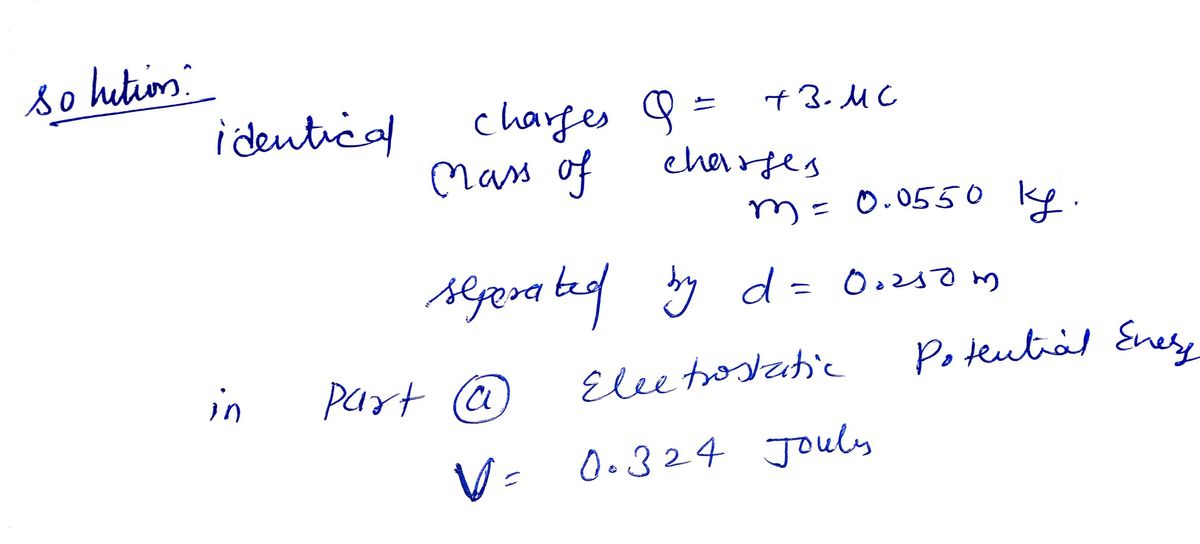 solution:
identical charges Q = +3. μC
Mass of charges
m = 0.0550 kg.
seperated by d = 0.250 m
in Part (a) Electrostatic Potential Energy
V = 0.324 Joules